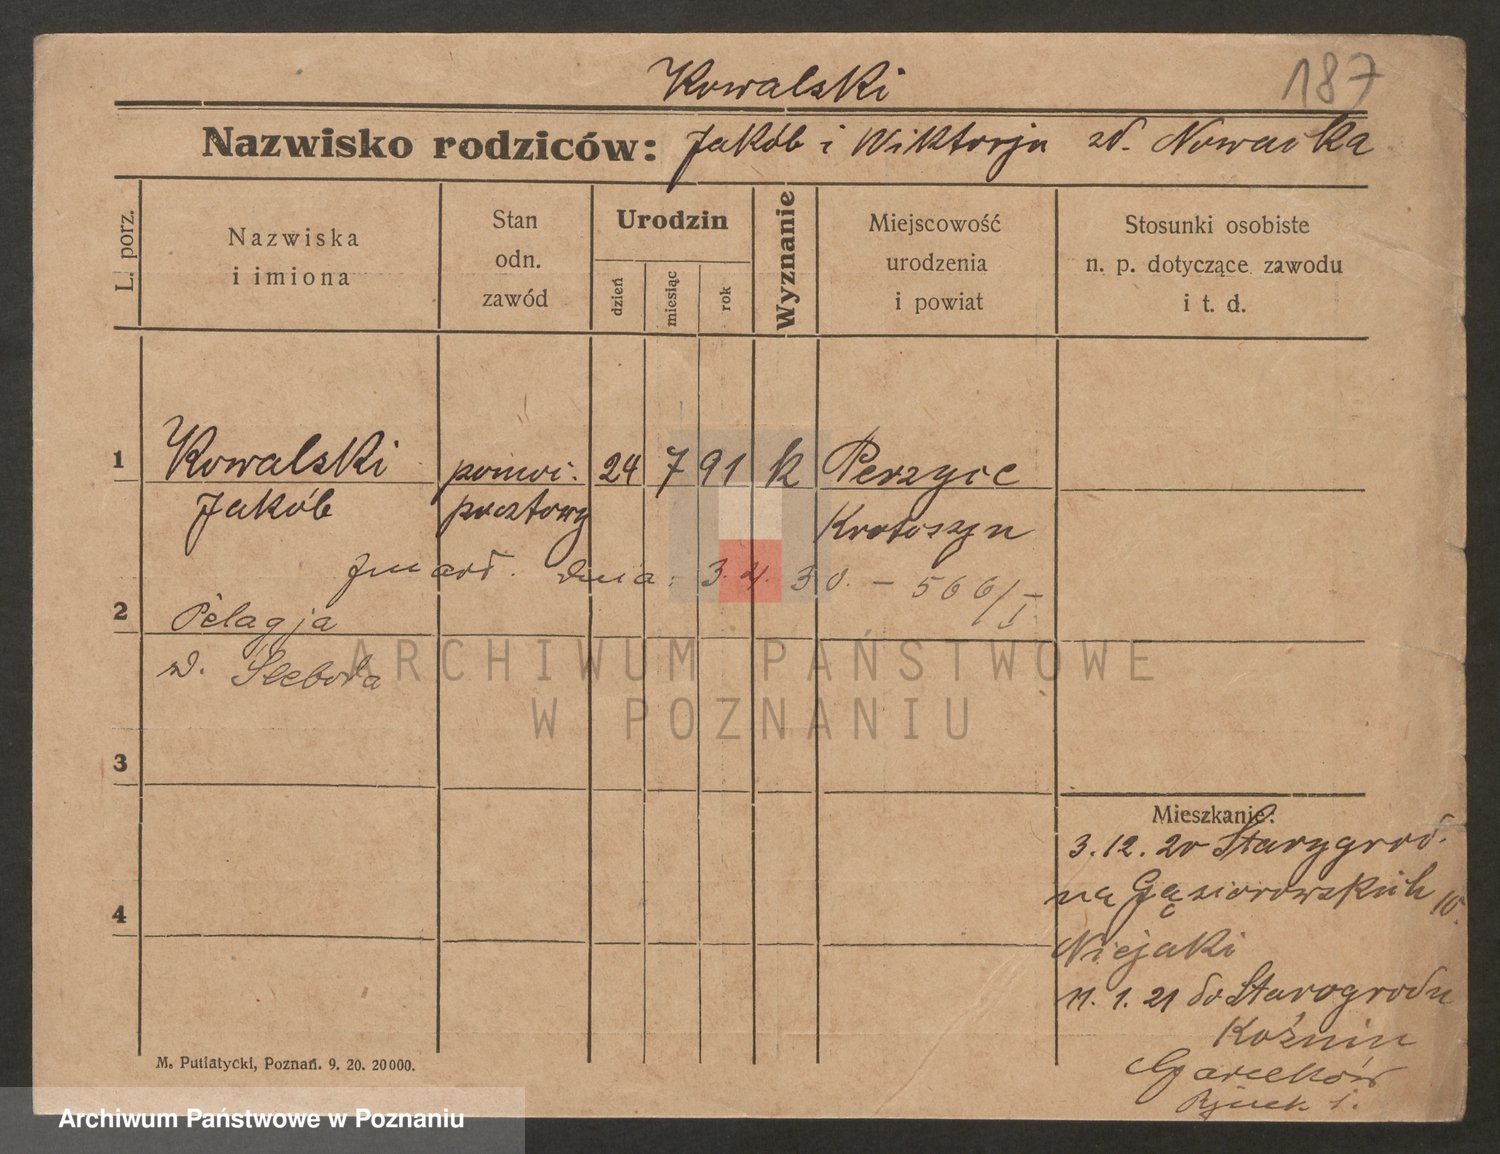 Kowalski
187
Nazwisko rodziców: Jakób i Wiktorja zd. Nowacka
L. porz.
Nazwiska
i imiona
Stan
odn.
zawód
Urodzin
dzień
miesiąc
rok
Wyznanie
Miejscowość
urodzenia
i powiat
Stosunki osobiste
n. p. dotyczące zawodu
i t. d.
1
Kowalski pomoc. 24 7 91 k Perzyce
Jakób pocztowy Krotoszyn
zmarł. dnia. 3. 4. 30. - 566/I
2
Pelagja
zd. Śleboda
ARCHIWUM PAŃSTWOWE
W POZNANIU
3
4
Mieszkanie:
3.12.20 Starygród.
na Gąsiorowskich 10.
Niejaki
11. 1. 21 do Starogrodu
Koźmin
Garcarków
Rynek 1.
M. Putiatycki, Poznań. 9. 20. 20000.
Archiwum Państwowe w Poznaniu